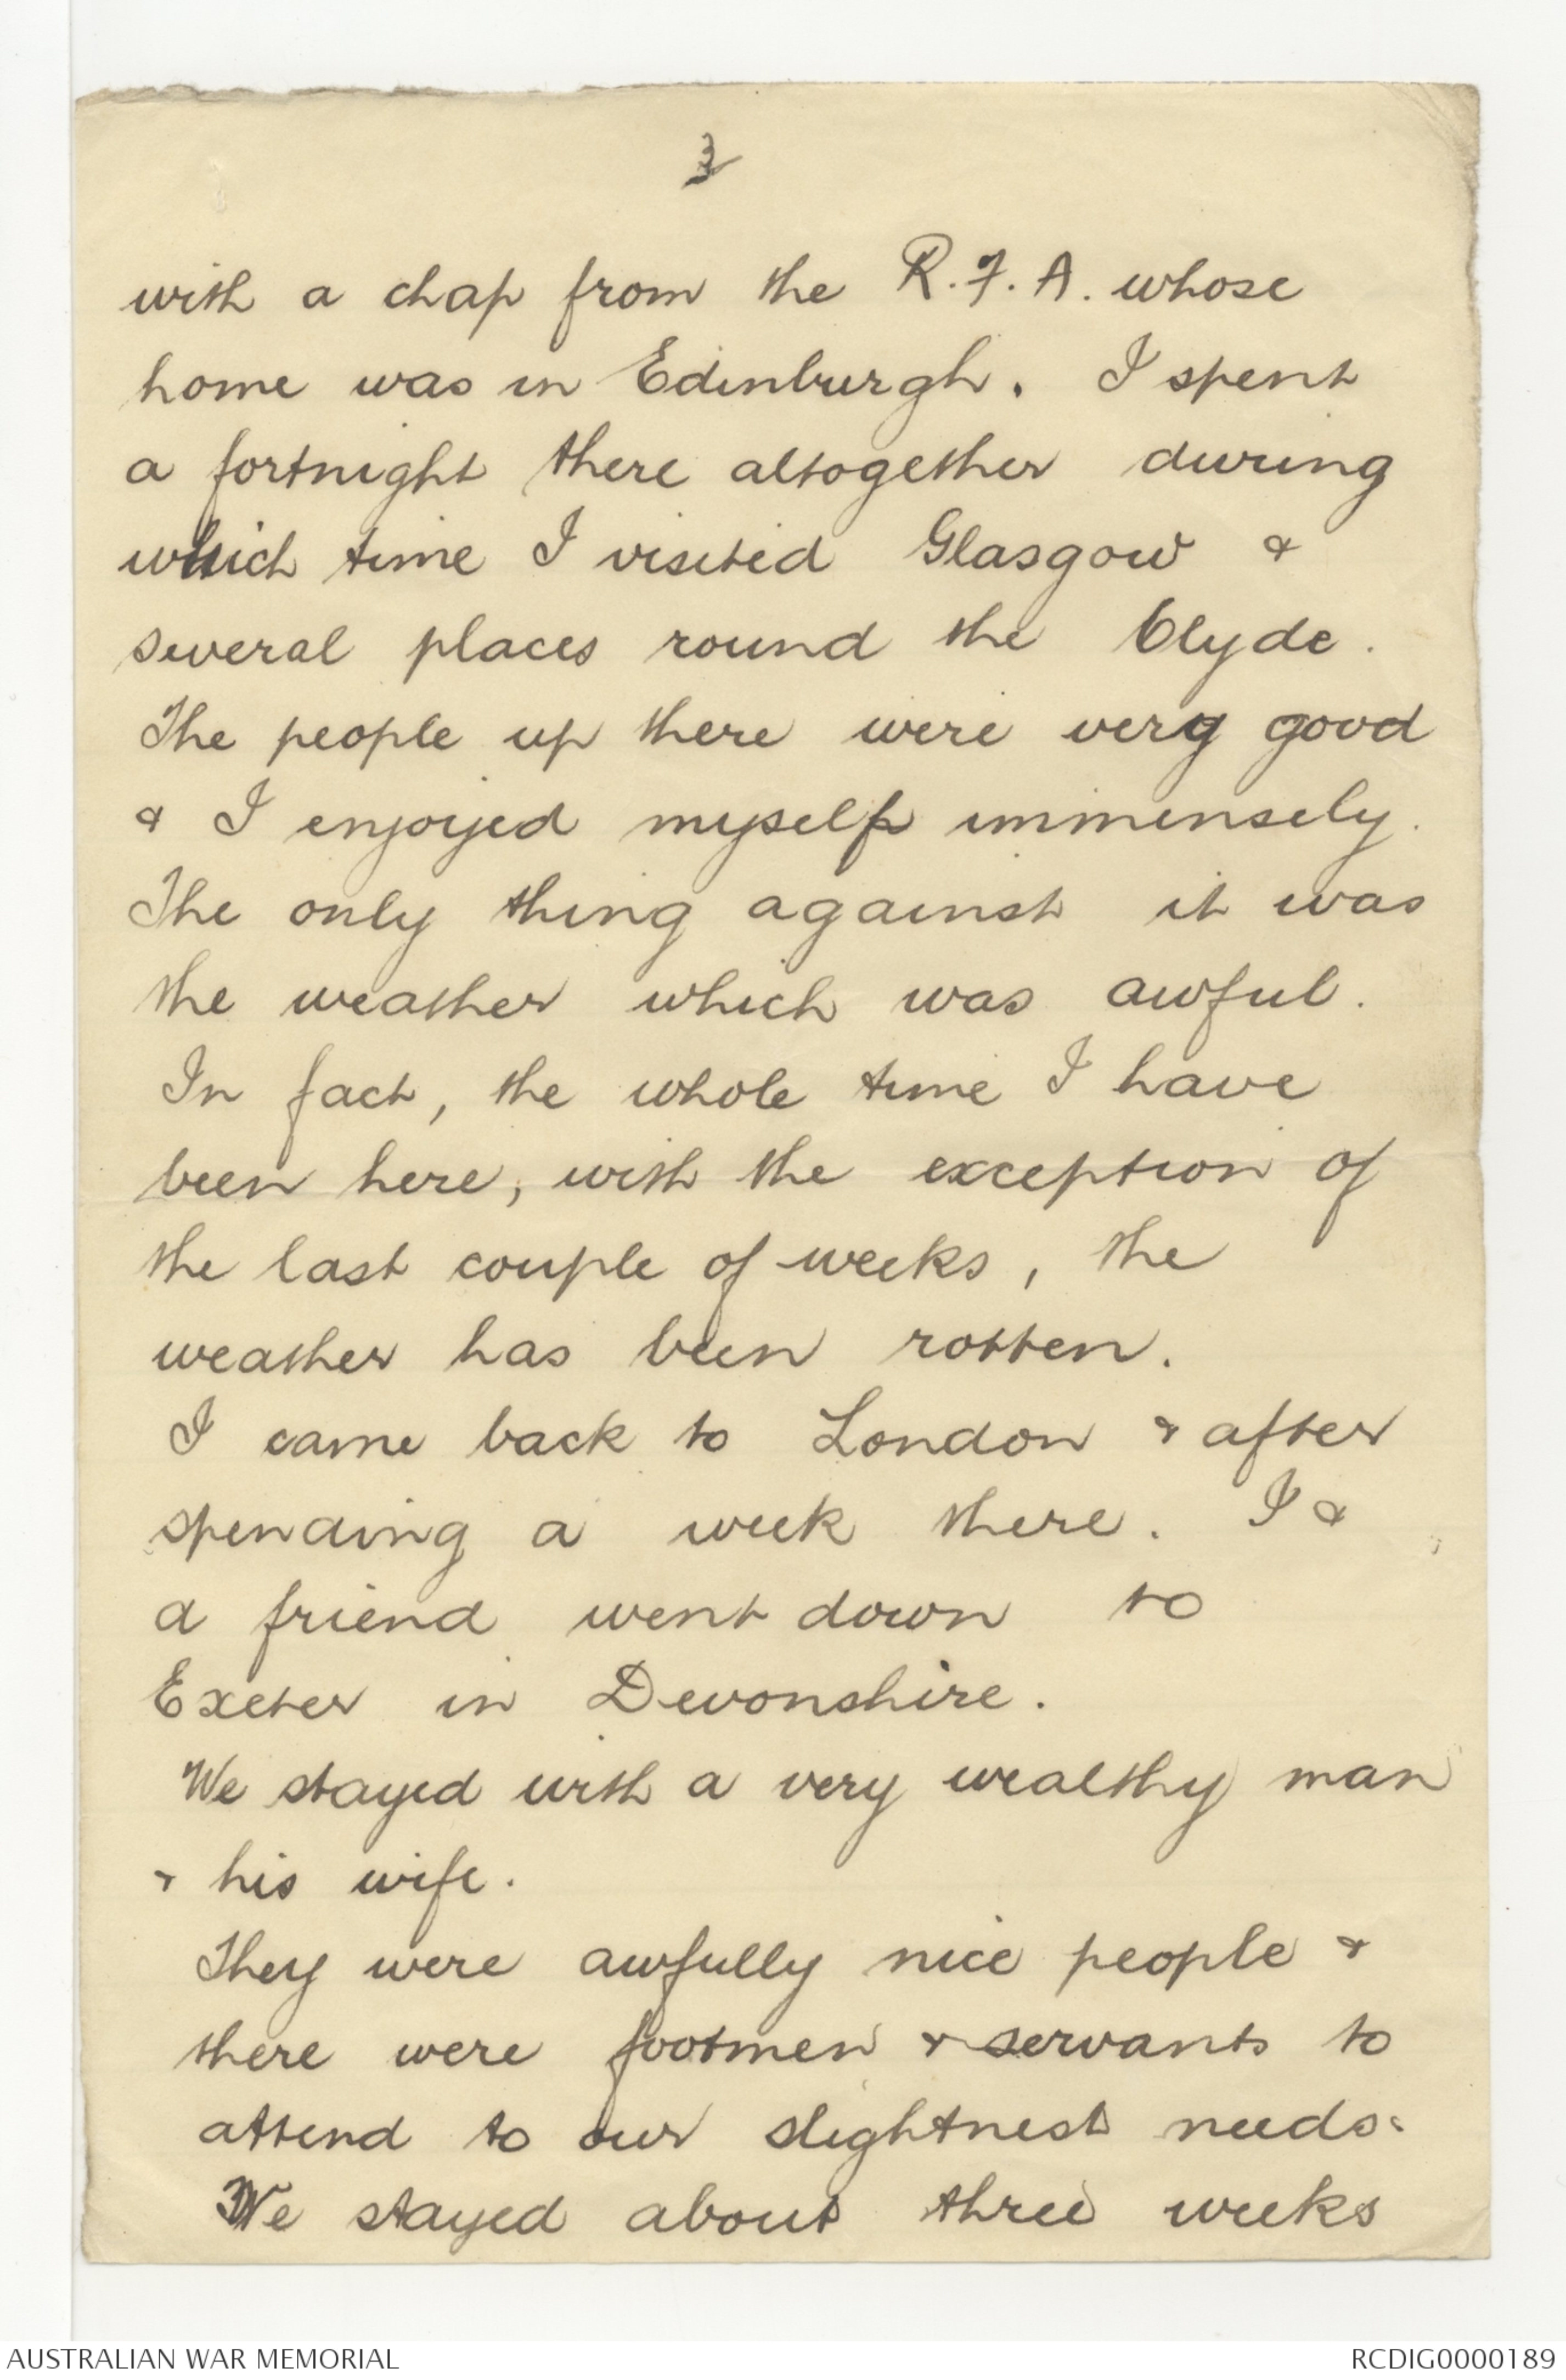 3
with a chap from the R.F.A. whose
home was in Edinburgh. I spent
a fortnight there altogether during
which time I visited Glasgow &
several places round the Clyde.
The people up there were very good
& I enjoyed myself immensely.
The only thing against it was
the weather which was awful.
In fact, the whole time I have
been here, with the exception of
the last couple of weeks, the
weather has been rotten.
I came back to London & after
spending a week there. I &
a friend went down to
Exeter in Devonshire.
We stayed with a very wealthy man
& his wife.
They were awfully nice people &
there were footmen & servants to
attend to our slightnest needs.
We stayed about three weeks
AUSTRALIAN WAR MEMORIAL
RCDIG0000189